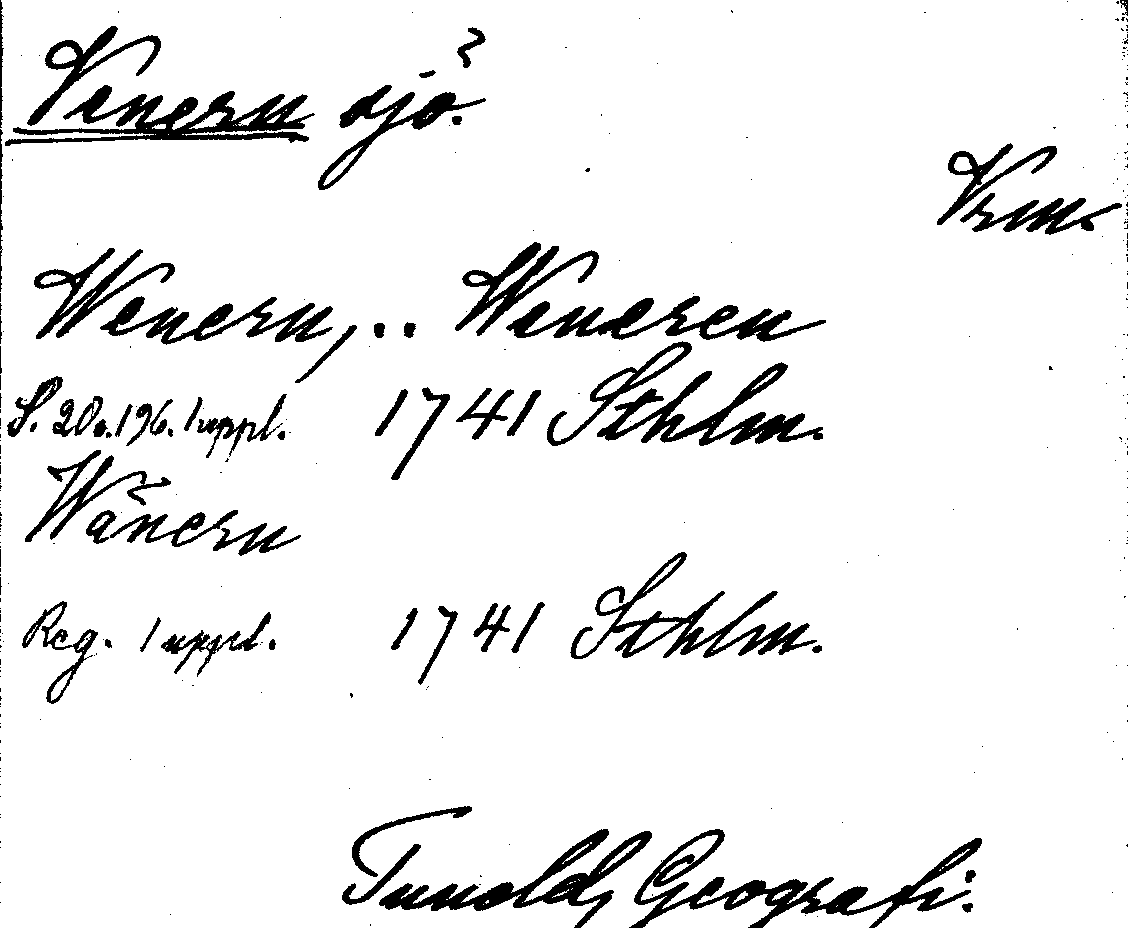 Venern sjö.
Vrm.
Wenern, .. Weneren
S. 20 o. 196. 1 uppl. 1741 Sthlm.
Wänern
Reg. 1 uppl. 1741 Sthlm.
Tunelds Geografi.